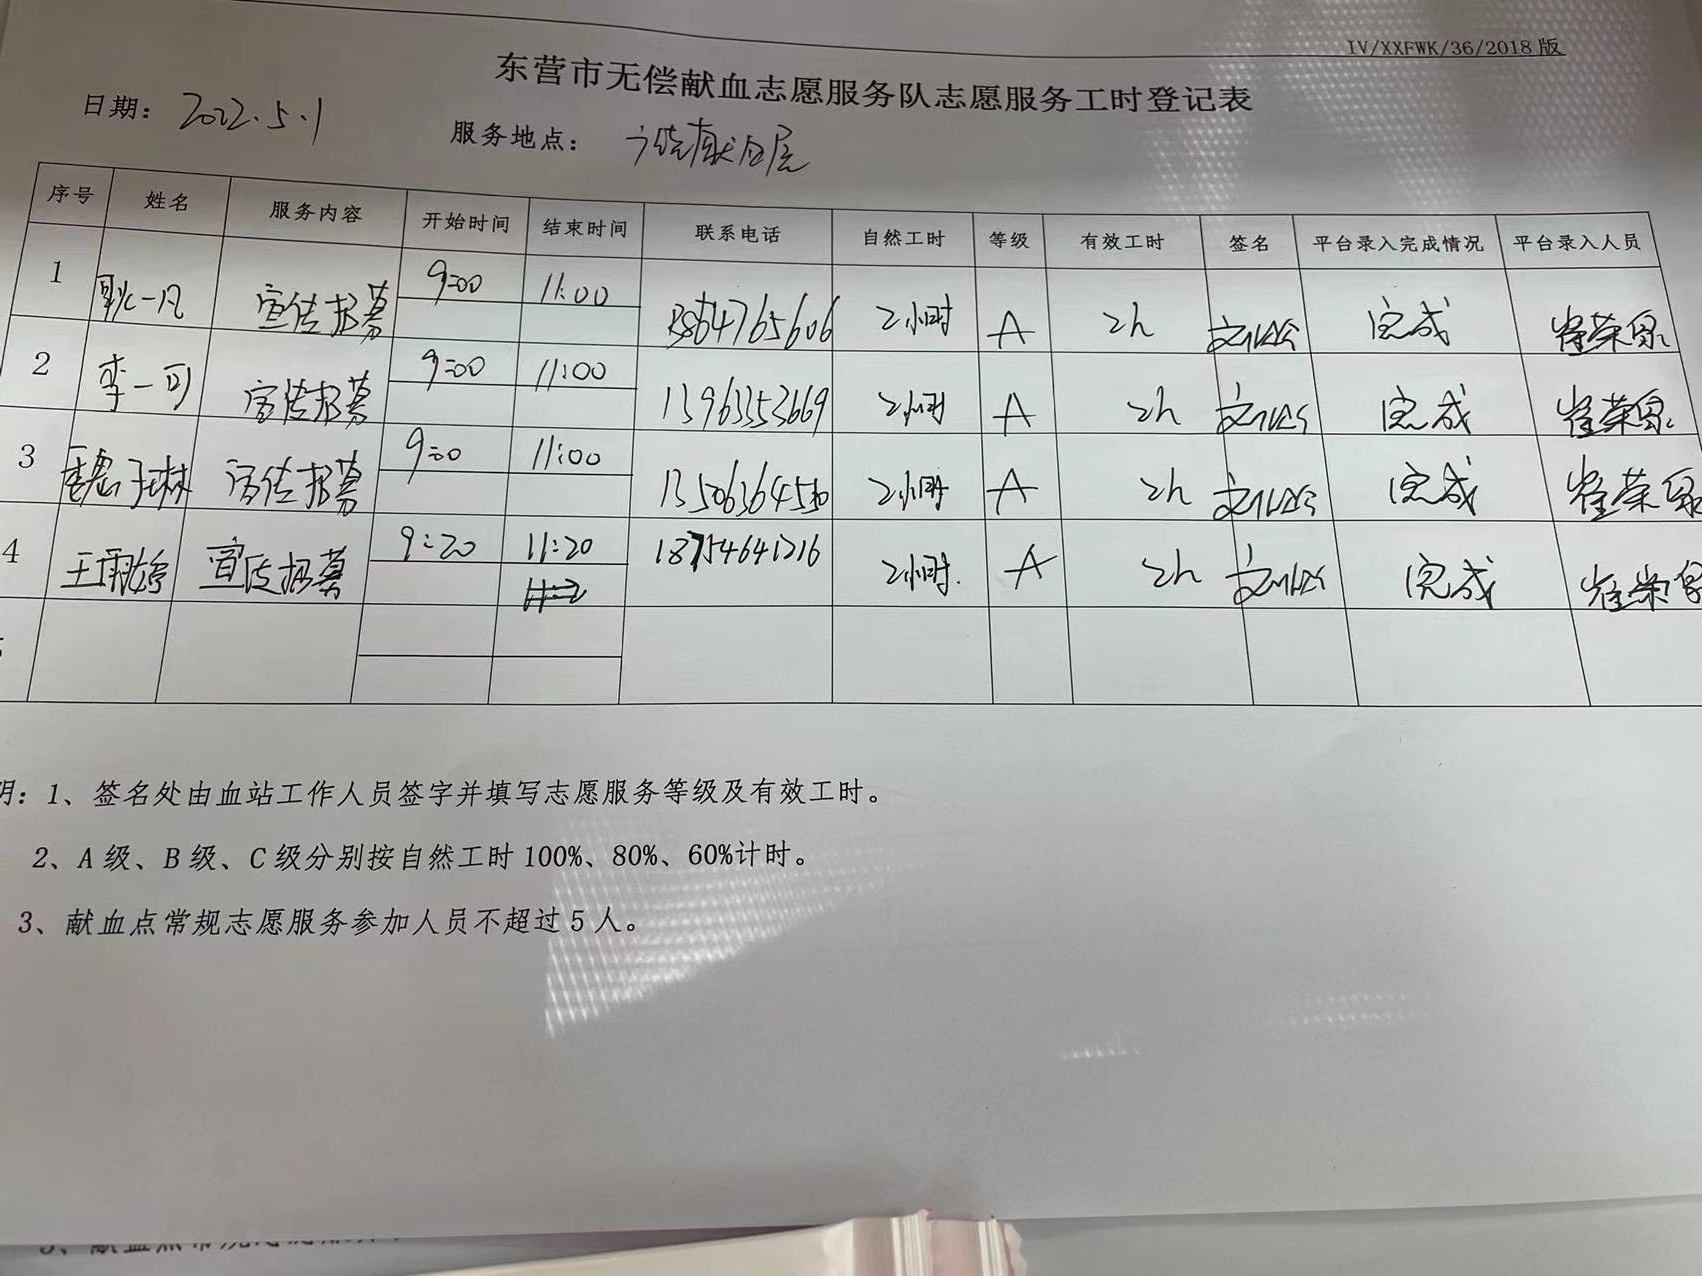 IV/XXFWK/36/2018版
东营市无偿献血志愿服务队志愿服务工时登记表
日期: 2022.5.1 服务地点: 献血屋
序号 姓名 服务内容 开始时间 结束时间 联系电话 自然工时 等级 有效工时 签名 平台录入完成情况 平台录入人员
1 耿一凡 宣传招募 9:00 11:00 13864765606 2小时 A 2h 完成 崔荣泉
2 李一可 宣传招募 9:00 11:00 13963353669 2小时 A 2h 完成 崔荣泉
3 宣传招募 9:00 11:00 2小时 A 2h 完成 崔荣泉
4 宣传招募 9:20 11:20 18754641216 2小时. A 2h 完成 崔荣泉
明: 1、签名处由血站工作人员签字并填写志愿服务等级及有效工时。
2、A级、B级、C级分别按自然工时100%、80%、60%计时。
3、献血点常规志愿服务参加人员不超过5人。